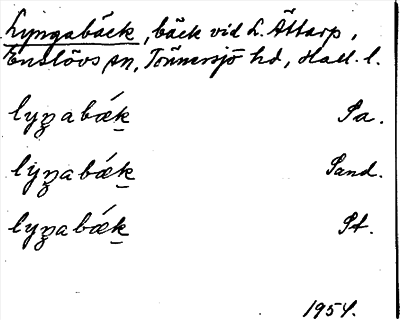 Lyngabäck, bäck vid L. Ättarp,
Enslövs sn, Tönnersjö hd, Hall. l.
lyŋabǽk Sa.
lýŋabǽk Sand.
lyŋabǽk St.
1954.